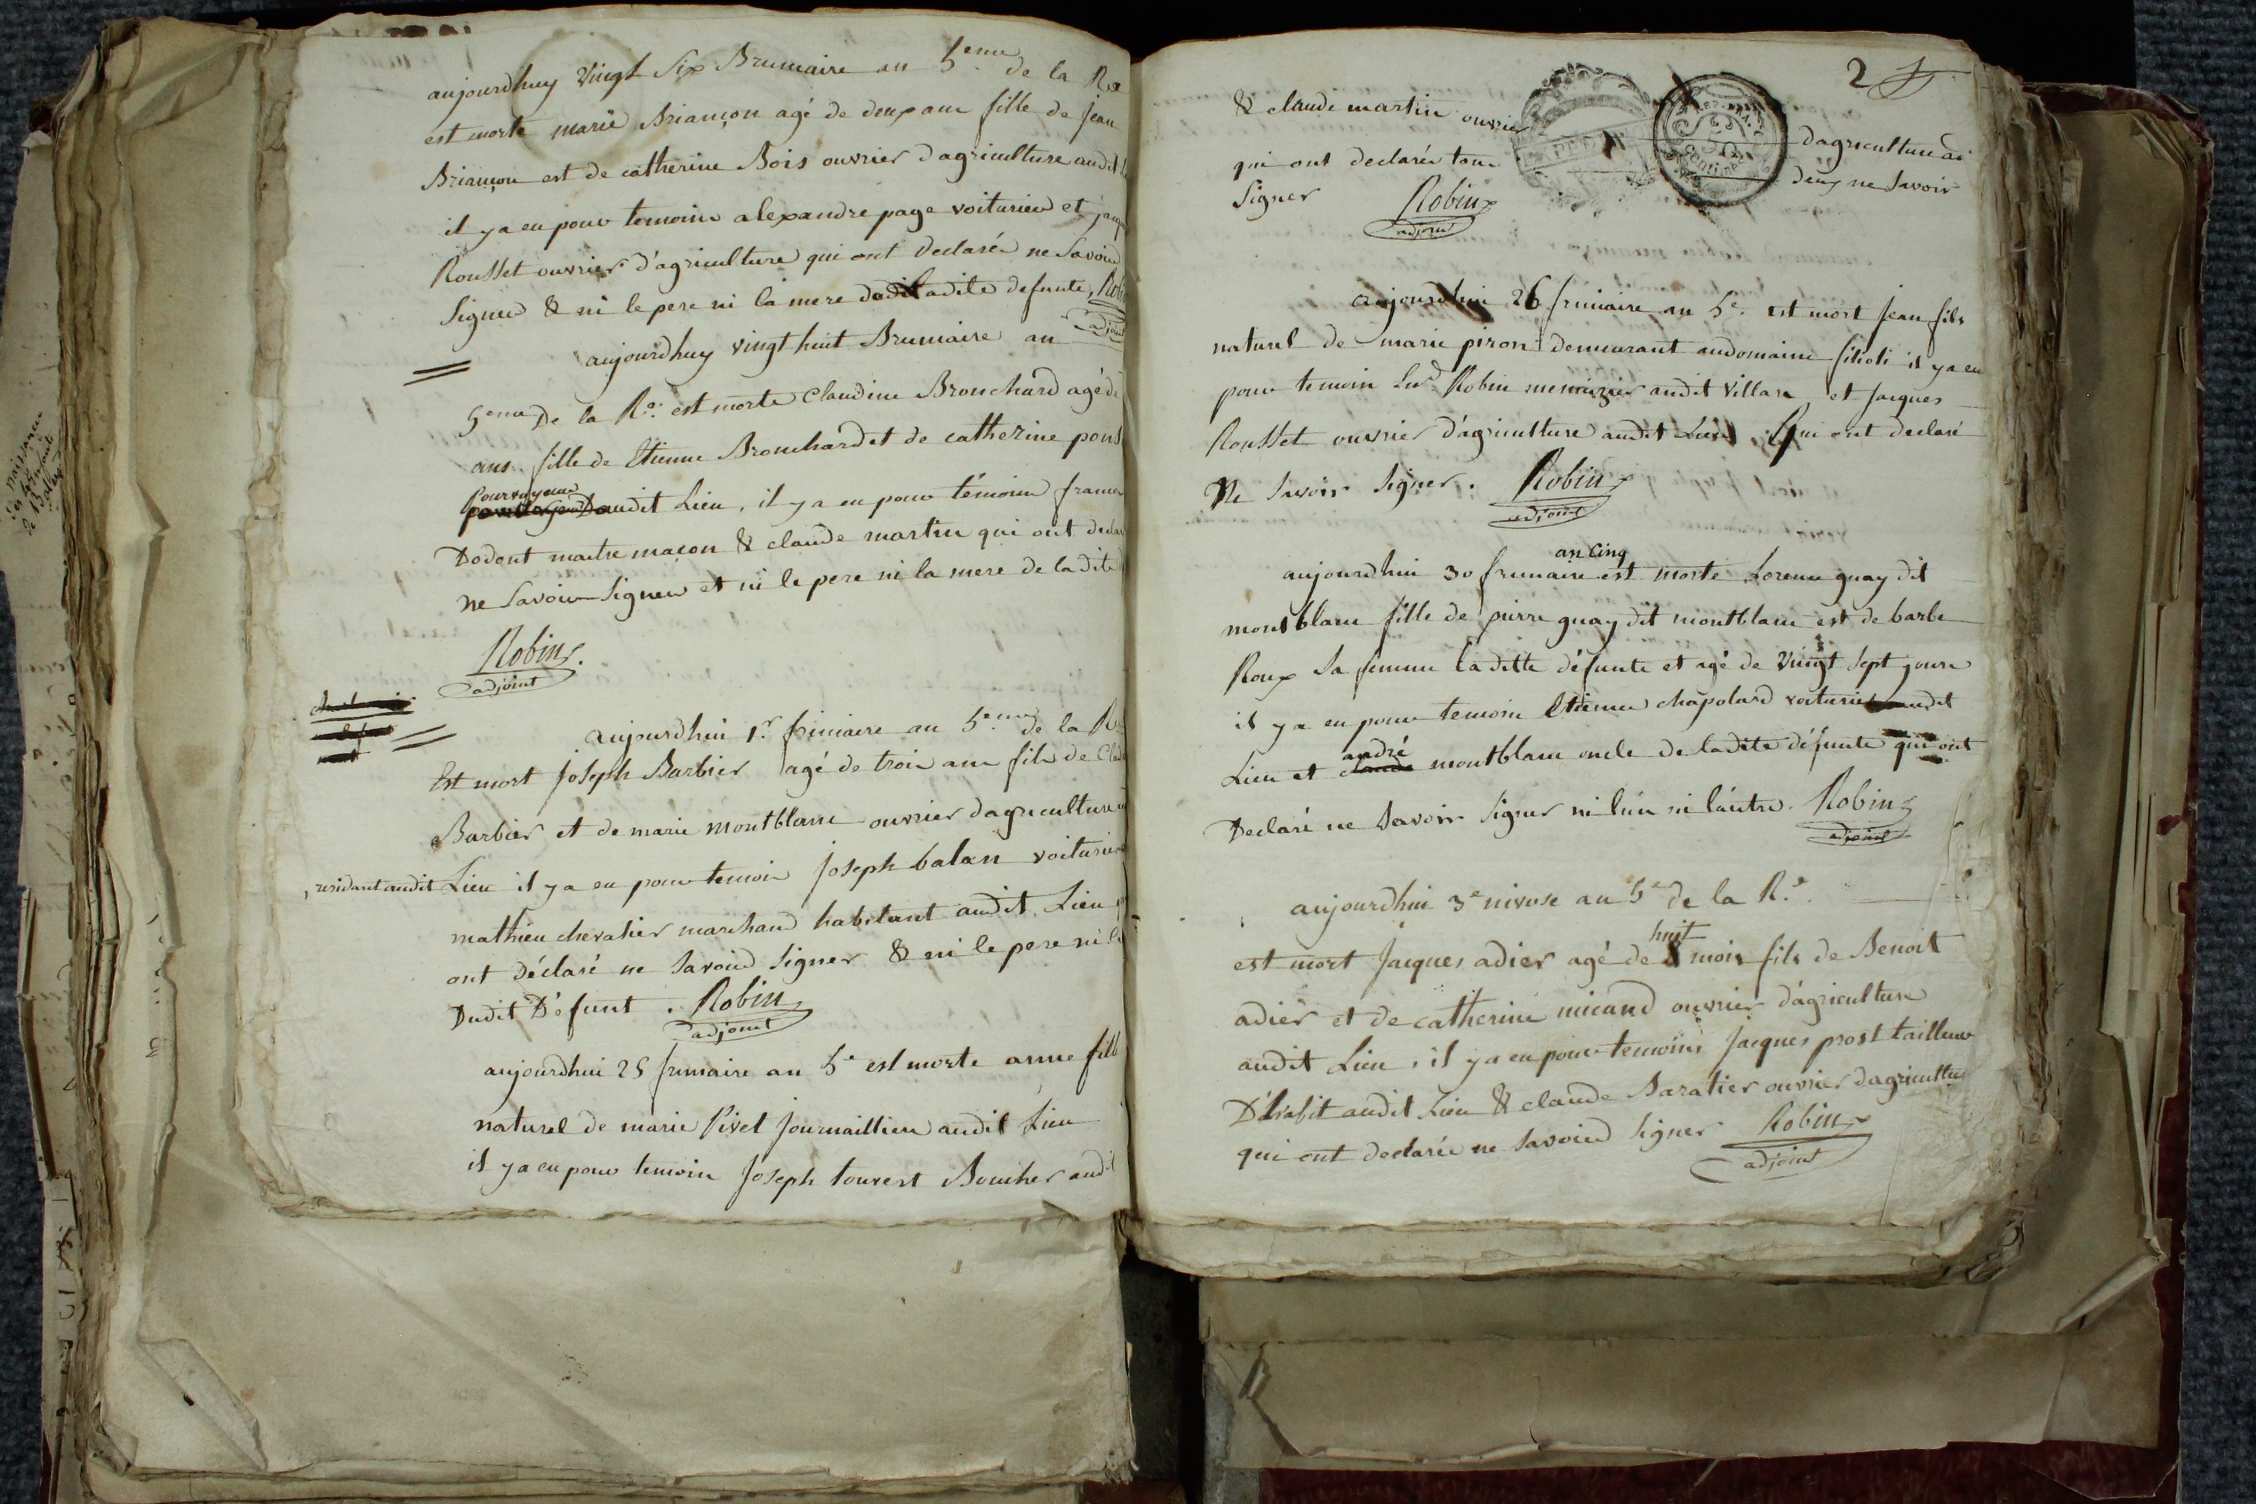 aujourdhuy vingt six Brumaire an 5eme de la Re
est morte marie Briançon agé de deux ans fille de jean
Briançon est de catherine Bois ouvrier dagriculture audit
il y a eu pour temoins alexandre page voiturier et
Rousset ouvrier d'agriculture qui ont declarés ne Savoir
Signer & ni le pere ni la mere ladite defunte, Robin
adjoint
aujourdhuy vingt huit Brumaire an
5eme De la Re. est morte Claudine Brouchard agé de
ans fille de Etienne Brouchard et de catherine pons
pourvoyeur
audit Lieu, il y a eu pour témoins
Dodont maitre maçon & claude martin qui ont
ne Savoir Signer et ni le pere ni la mere de la dite
Robin
adjoint
aujourdhui 1r. frimaire an 5eme de la R
Est mort Joseph Barbier agé de trois ans fils de
Barbier et de marie montblanc ouvrier dagriculture
, residant audit Lieu il y a eu pour temoin Joseph balan voiturier
mathieu chevalier marchand habitant audit Lieu
ont déclaré ne Savoir Signer & ni le pere ni
Dudit Défunt. Robin
adjoint
aujourdhui 25 frimaire an 5e est morte anne fille
naturel de marie Pivet Journaillier audit Lieu
il y a eu pour temoins Joseph touvert Boucher audit
2
& claude martin ouvrier dagriculture
qui ont declarés tous deux ne Savoir
Signer Robin
adjoint
aujourdhui 26 frimaire an 5e. est mort Jean fils
naturel de marie piron demeurant au domaine il y a eu
pour temoin Robin menuizier audit Villars, et Jacques
Rousset ouvrier d'agriculture audit Lieu Qui ont declaré
Ne Savoir Signer. Robin
adjoint
an cinq
aujourdhui 30 frimaire est morte guay dit
montblanc fille de pierre guay dit montblanc est de barbe
Roux Sa femme la ditte défunte et agé de vingt Sept jours
il y a eu pour temoin Etienne chapolard voiturier audit
andré
Lieu et montblanc oncle de ladite défunte qui ont
Declaré ne Savoir Signer ni lun ni lautre. Robin
adjoint
aujourdhui 3e nivose an 5e de la R.e
huit
est mort Jacques adier agé de mois fils de Benoit
adier et de catherine micand ouvrier d'agriculture
audit Lieu, il y a eu pour temoins Jacques prost tailleur
D'habit audit Lieu & claude Baratier ouvrier dagriculture
qui ont declarés ne Savoir Signer Robin
adjoint